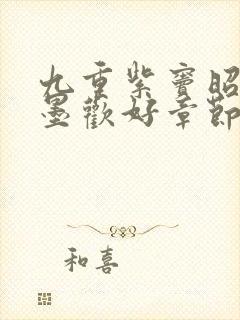 九重紫窦昭
墨歡好章節
和喜